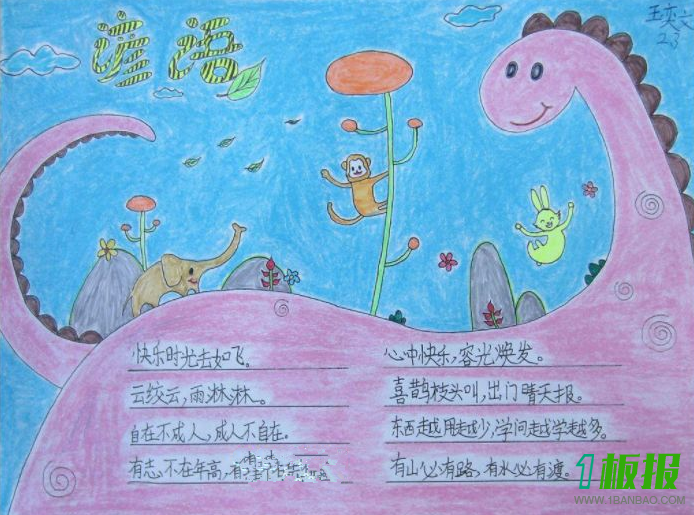 谚语
王奕
2.3
快乐时光去如飞。
云绞云,雨淋淋。
自在不成人,成人不自在。
有志不在年高,有
心中快乐,容光焕发。
喜鹊枝头叫,出门晴天报。
东西越用越少,学问越学越多。
有山必有路,有水必有渡。
1板报
WWW.1BANBAO.COM